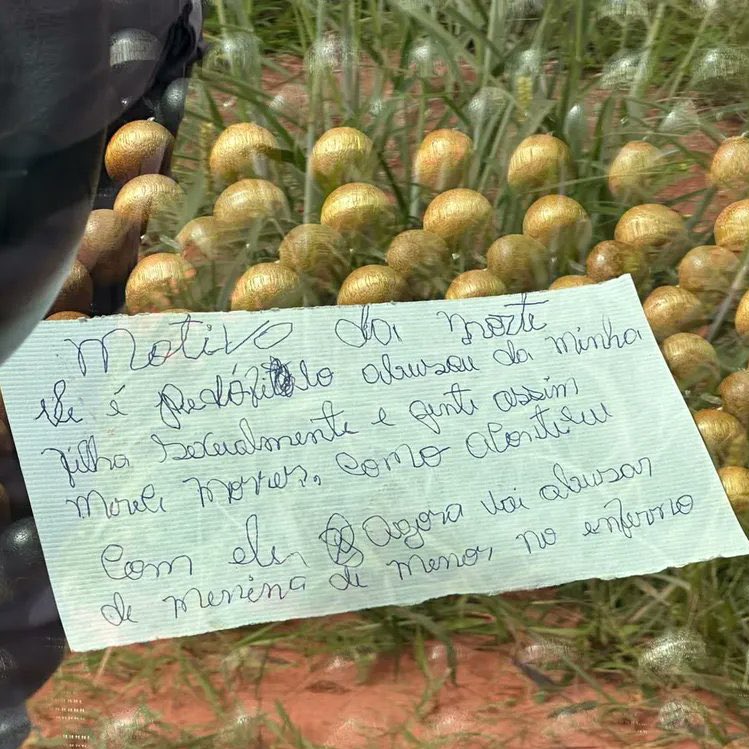 Motivo da morte
ele é pedófilo abusou da minha
filha sexualmente e gente assim
mereci morrer, como aconteceu
com ele Agora vai abusar
de menina de menor, no enferno